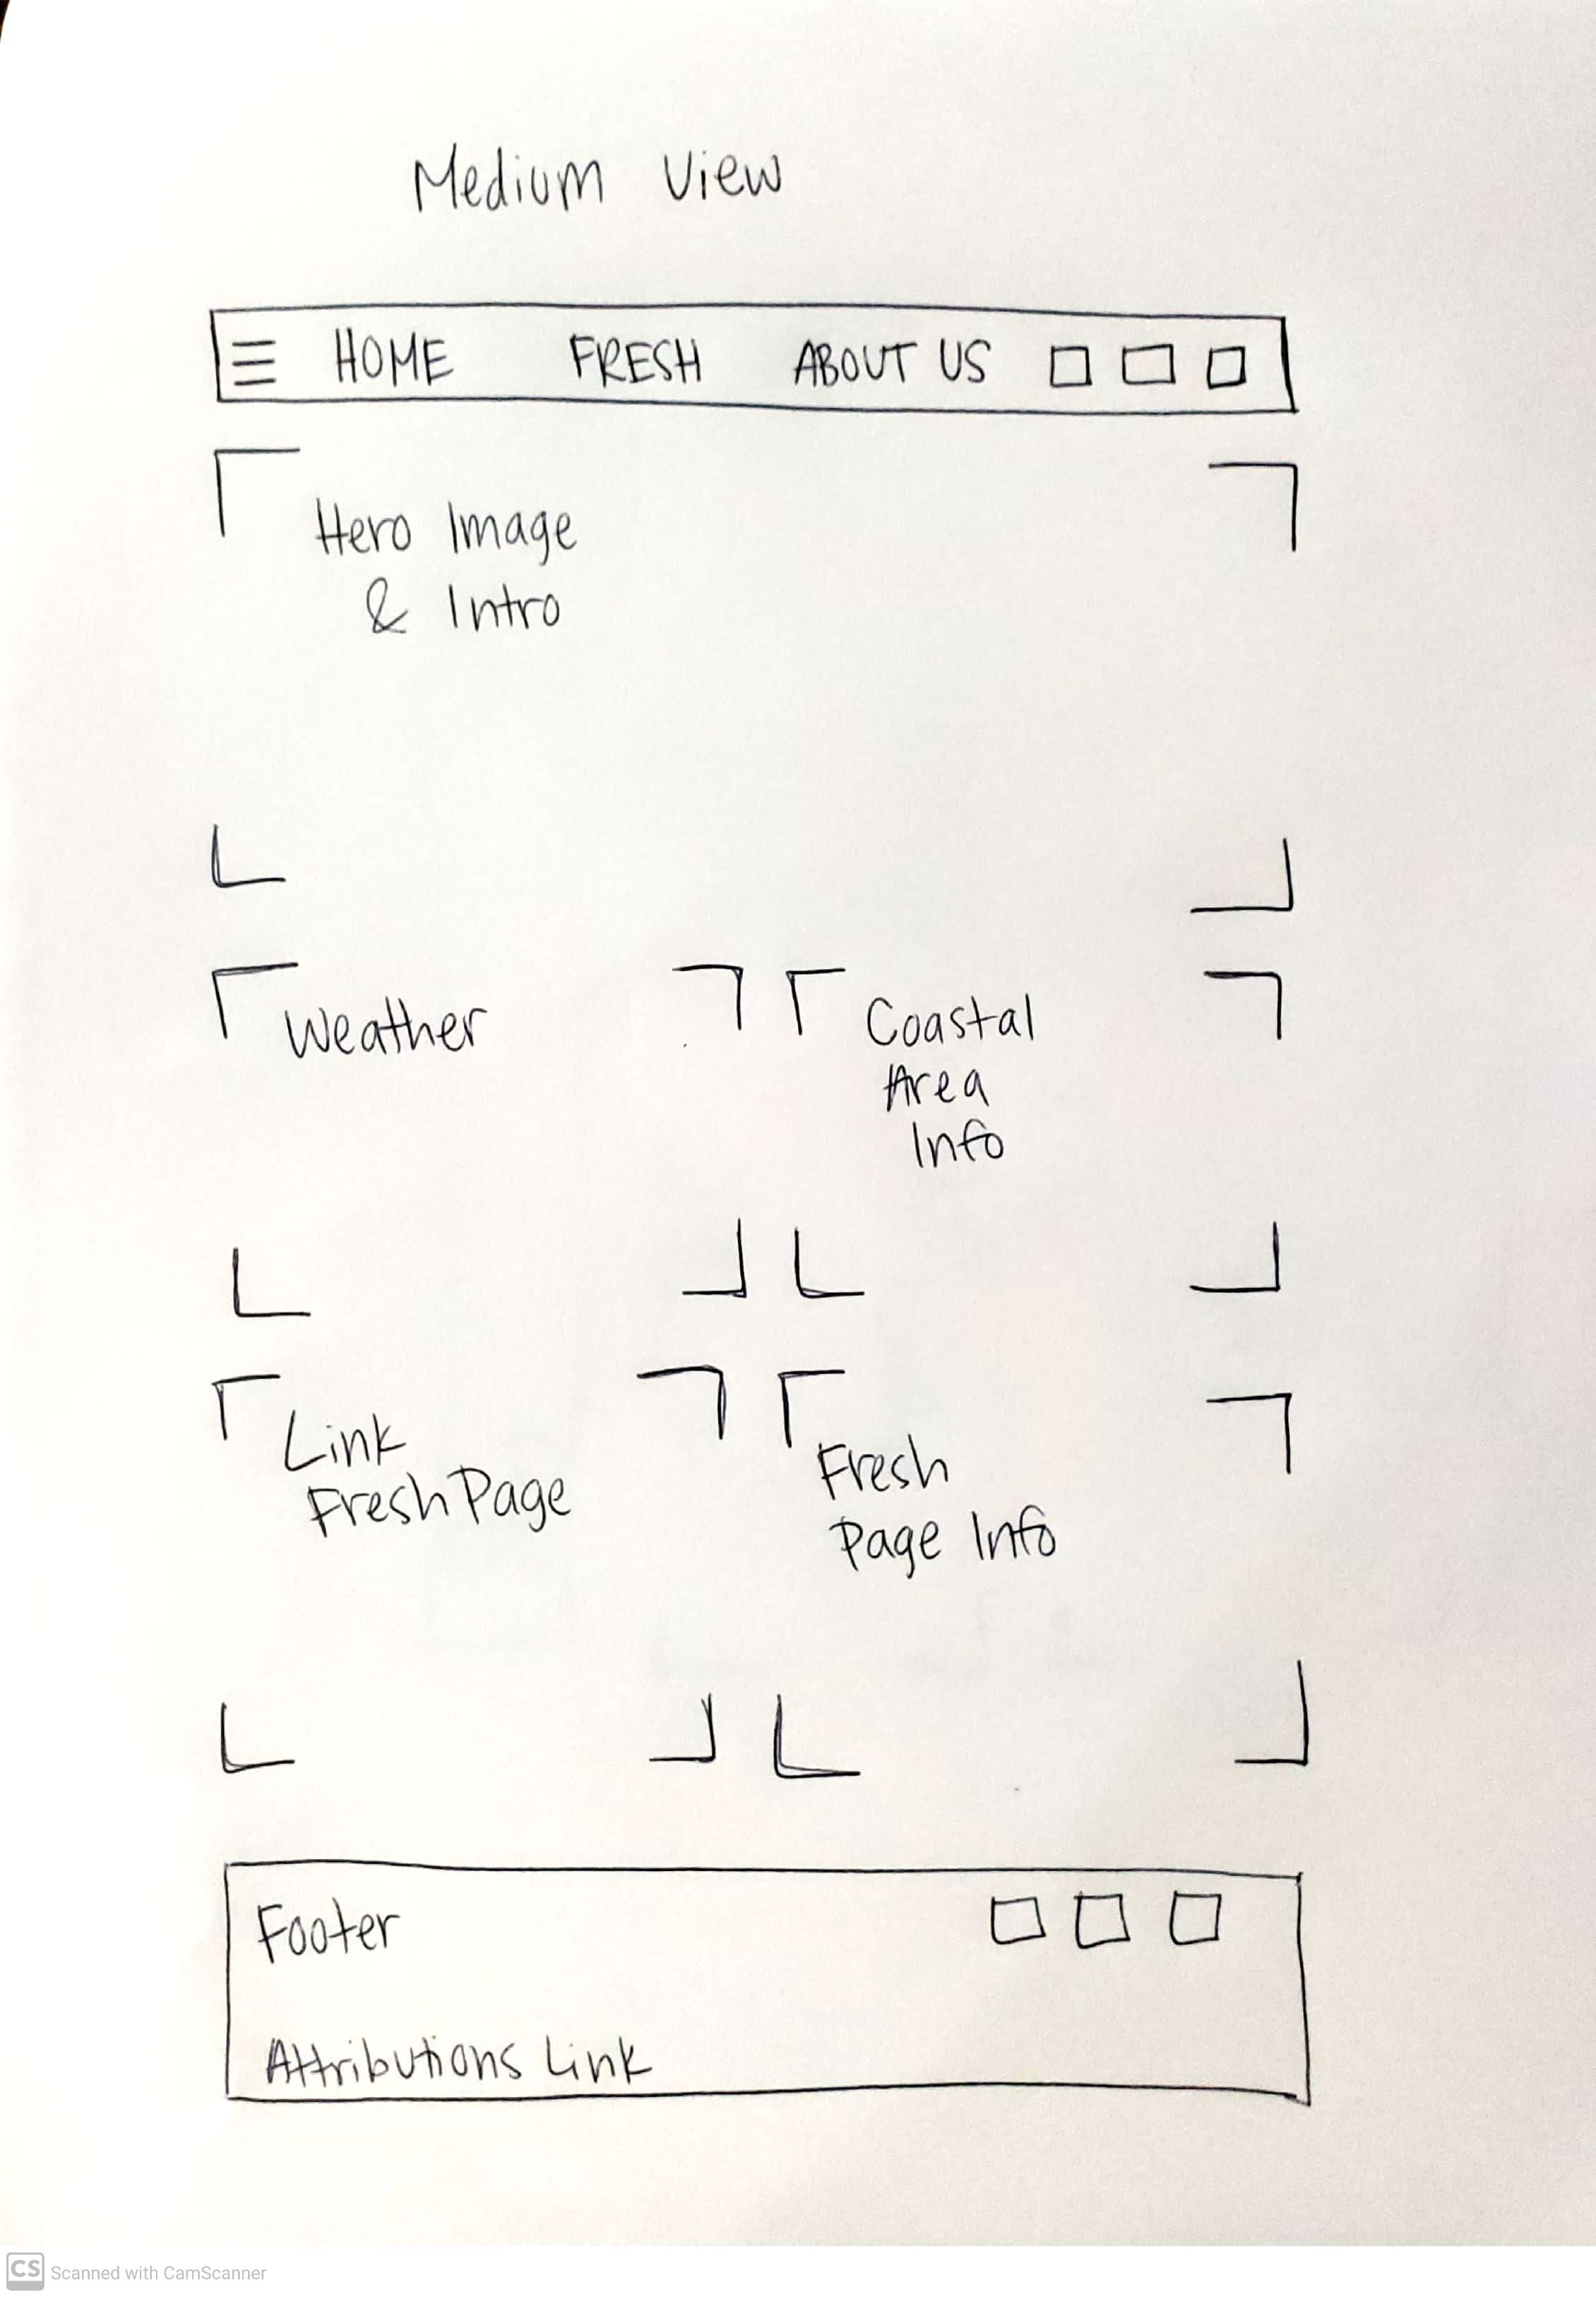 Medium View
HOME FRESH ABOUT US
Hero Image
& Intro
Weather
Coastal
Area
Info
Link
Fresh Page
Fresh
Page Info
Footer
Attributions Link
CS Scanned with CamScanner